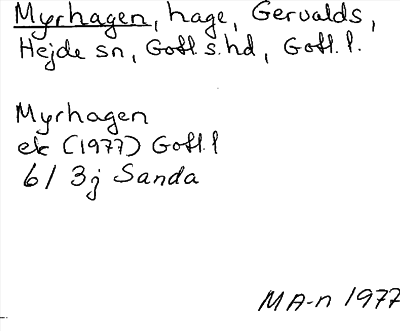 Myrhagen, hage, Gervalds,
Hejde sn, Gotl. s. hd, Gotl. l.
Myrhagen
ek (1977) Gotl. l
6I 3j Sanda
MA-n 1977